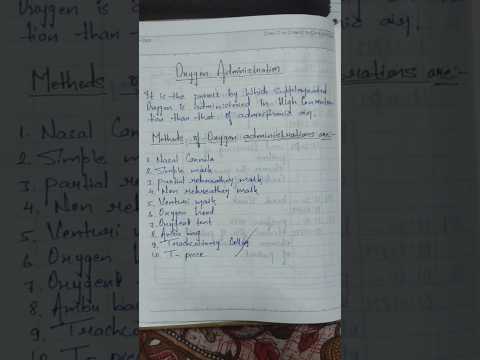 Oxygen Administration
It is the process by which supplemented
Oxygen is administered in High Concentra
tion than that of atmospheric air.
Methods of Oxygen administrations are:-
1. Nasal Cannula
2. Simple mask
3. partial rebreathey mask
4. Non rebreathey mask
5. Venturi mask
6. Oxygen Hood
7. Oxygent tent
8. Ambu bag
9. Tracheostomy Collar
10. T- piece